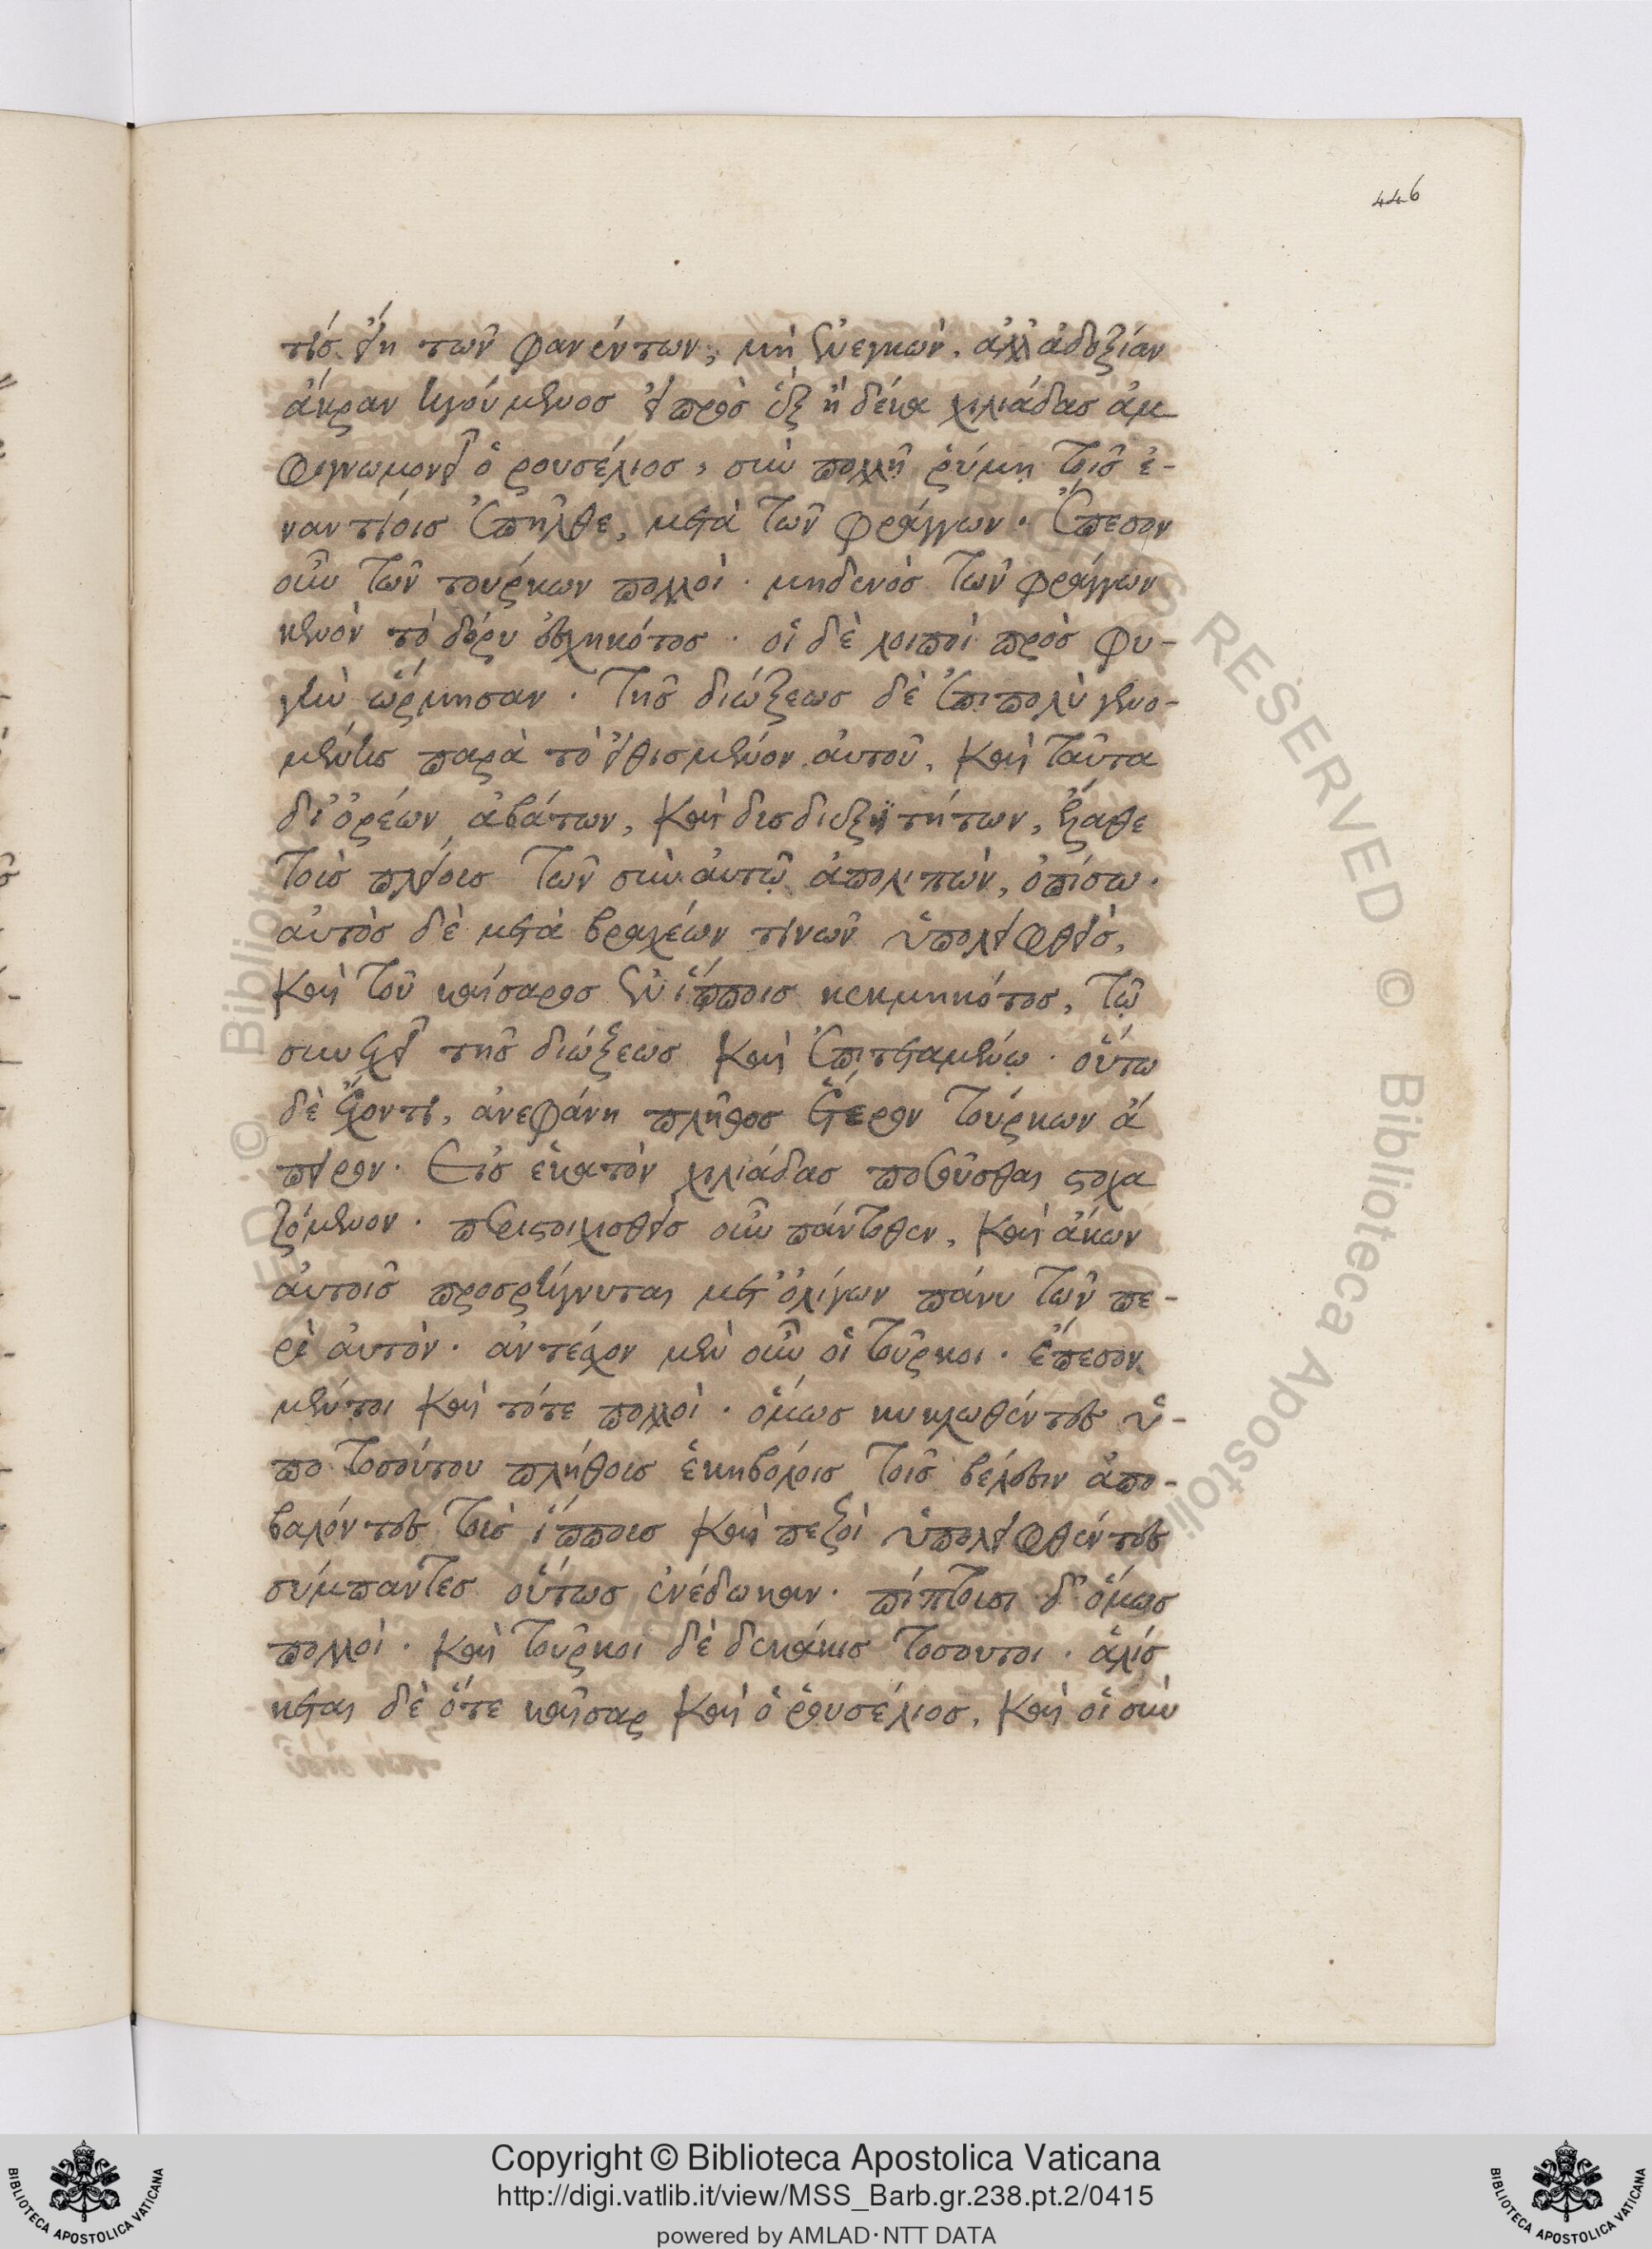 446
τίς εἴη τῶν φανέντων, μὴ ἐνεγκών. ἀλλ' ἀδοξίαν
ἄκραν ἡγούμενος εἰ πρὸς ἓξ ἢ δέκα χιλιάδας ἀμ
φιγνωμονεῖ ὁ ῥουσέλιος, σὺν πολλῇ ῥύμῃ τοῖς ἐ-
ναντίοις ἐπῆλθε, μετὰ τῶν φράγγων. ἔπεσον
οὖν τῶν τούρκων πολλοί. μηδενὸς τῶν φράγγων
κενὸν τὸ δόρυ ἐσχηκότος. οἱ δὲ λοιποὶ πρὸς φυ-
γὴν ὥρμησαν. τῆς διώξεως δὲ ἐπιπολὺ γενο-
μένης παρὰ τὸ εἰθισμένον αὐτοῦ, καὶ ταῦτα
δι' ὀρέων ἀβάτων, καὶ δυσδιεξϊτήτων, ἔλαθε
τοὺς πλείους τῶν σὺν αὐτῷ ἀπολιπὼν, ὀπίσω.
αὐτὸς δὲ μετὰ βραχέων τινῶν ὑπολειφθείς,
καὶ τοῦ καίσαρος ἐν ἵπποις κεκμηκότος, τῷ
συνεχεῖ τῆς διώξεως καὶ ἐπιτεταμένῳ. οὕτω
δὲ ἔχοντι, ἀνεφάνη πλῆθος ἕτερον τούρκων ἄ
πειρον. εἰς ἑκατὸν χιλιάδας ποσοῦσθαι στοχα
ζόμενον. περιστοιχισθεὶς οὖν πάντοθεν, καὶ ἄκων
αὐτοῖς προσρήγνυται μετ' ὀλίγων πάνυ τῶν πε-
ρὶ αὐτόν. ἀντέσχον μὲν οὖν οἱ τοῦρκοι. ἔπεσον
μέντοι καὶ τότε πολλοί. ὅμως κυκλωθέντες ὑ-
πο τοσούτου πλήθους ἑκηβόλοις τοῖς βέλεσιν ἀπο-
βαλόντες τοὺς ἵππους καὶ πεζοὶ ὑπολειφθέντες
σύμπαντες οὕτως ἐνέδωκαν. πίπτουσι δ' ὅμως
πολλοί. καὶ τοῦρκοι δὲ δεκάκις τοσοῦτοι. ἁλίσ
κεται δὲ ὅτε καῖσαρ καὶ ὁ ῥουσέλιος, καὶ οἱ σὺν
Copyright © Biblioteca Apostolica Vaticana
http://digi.vatlib.it/view/MSS_Barb.gr.238.pt.2/0415
powered by AMLAD·NTT DATA
BIBLIOTECA APOSTOLICA VATICANA
BIBLIOTECA APOSTOLICA VATICANA